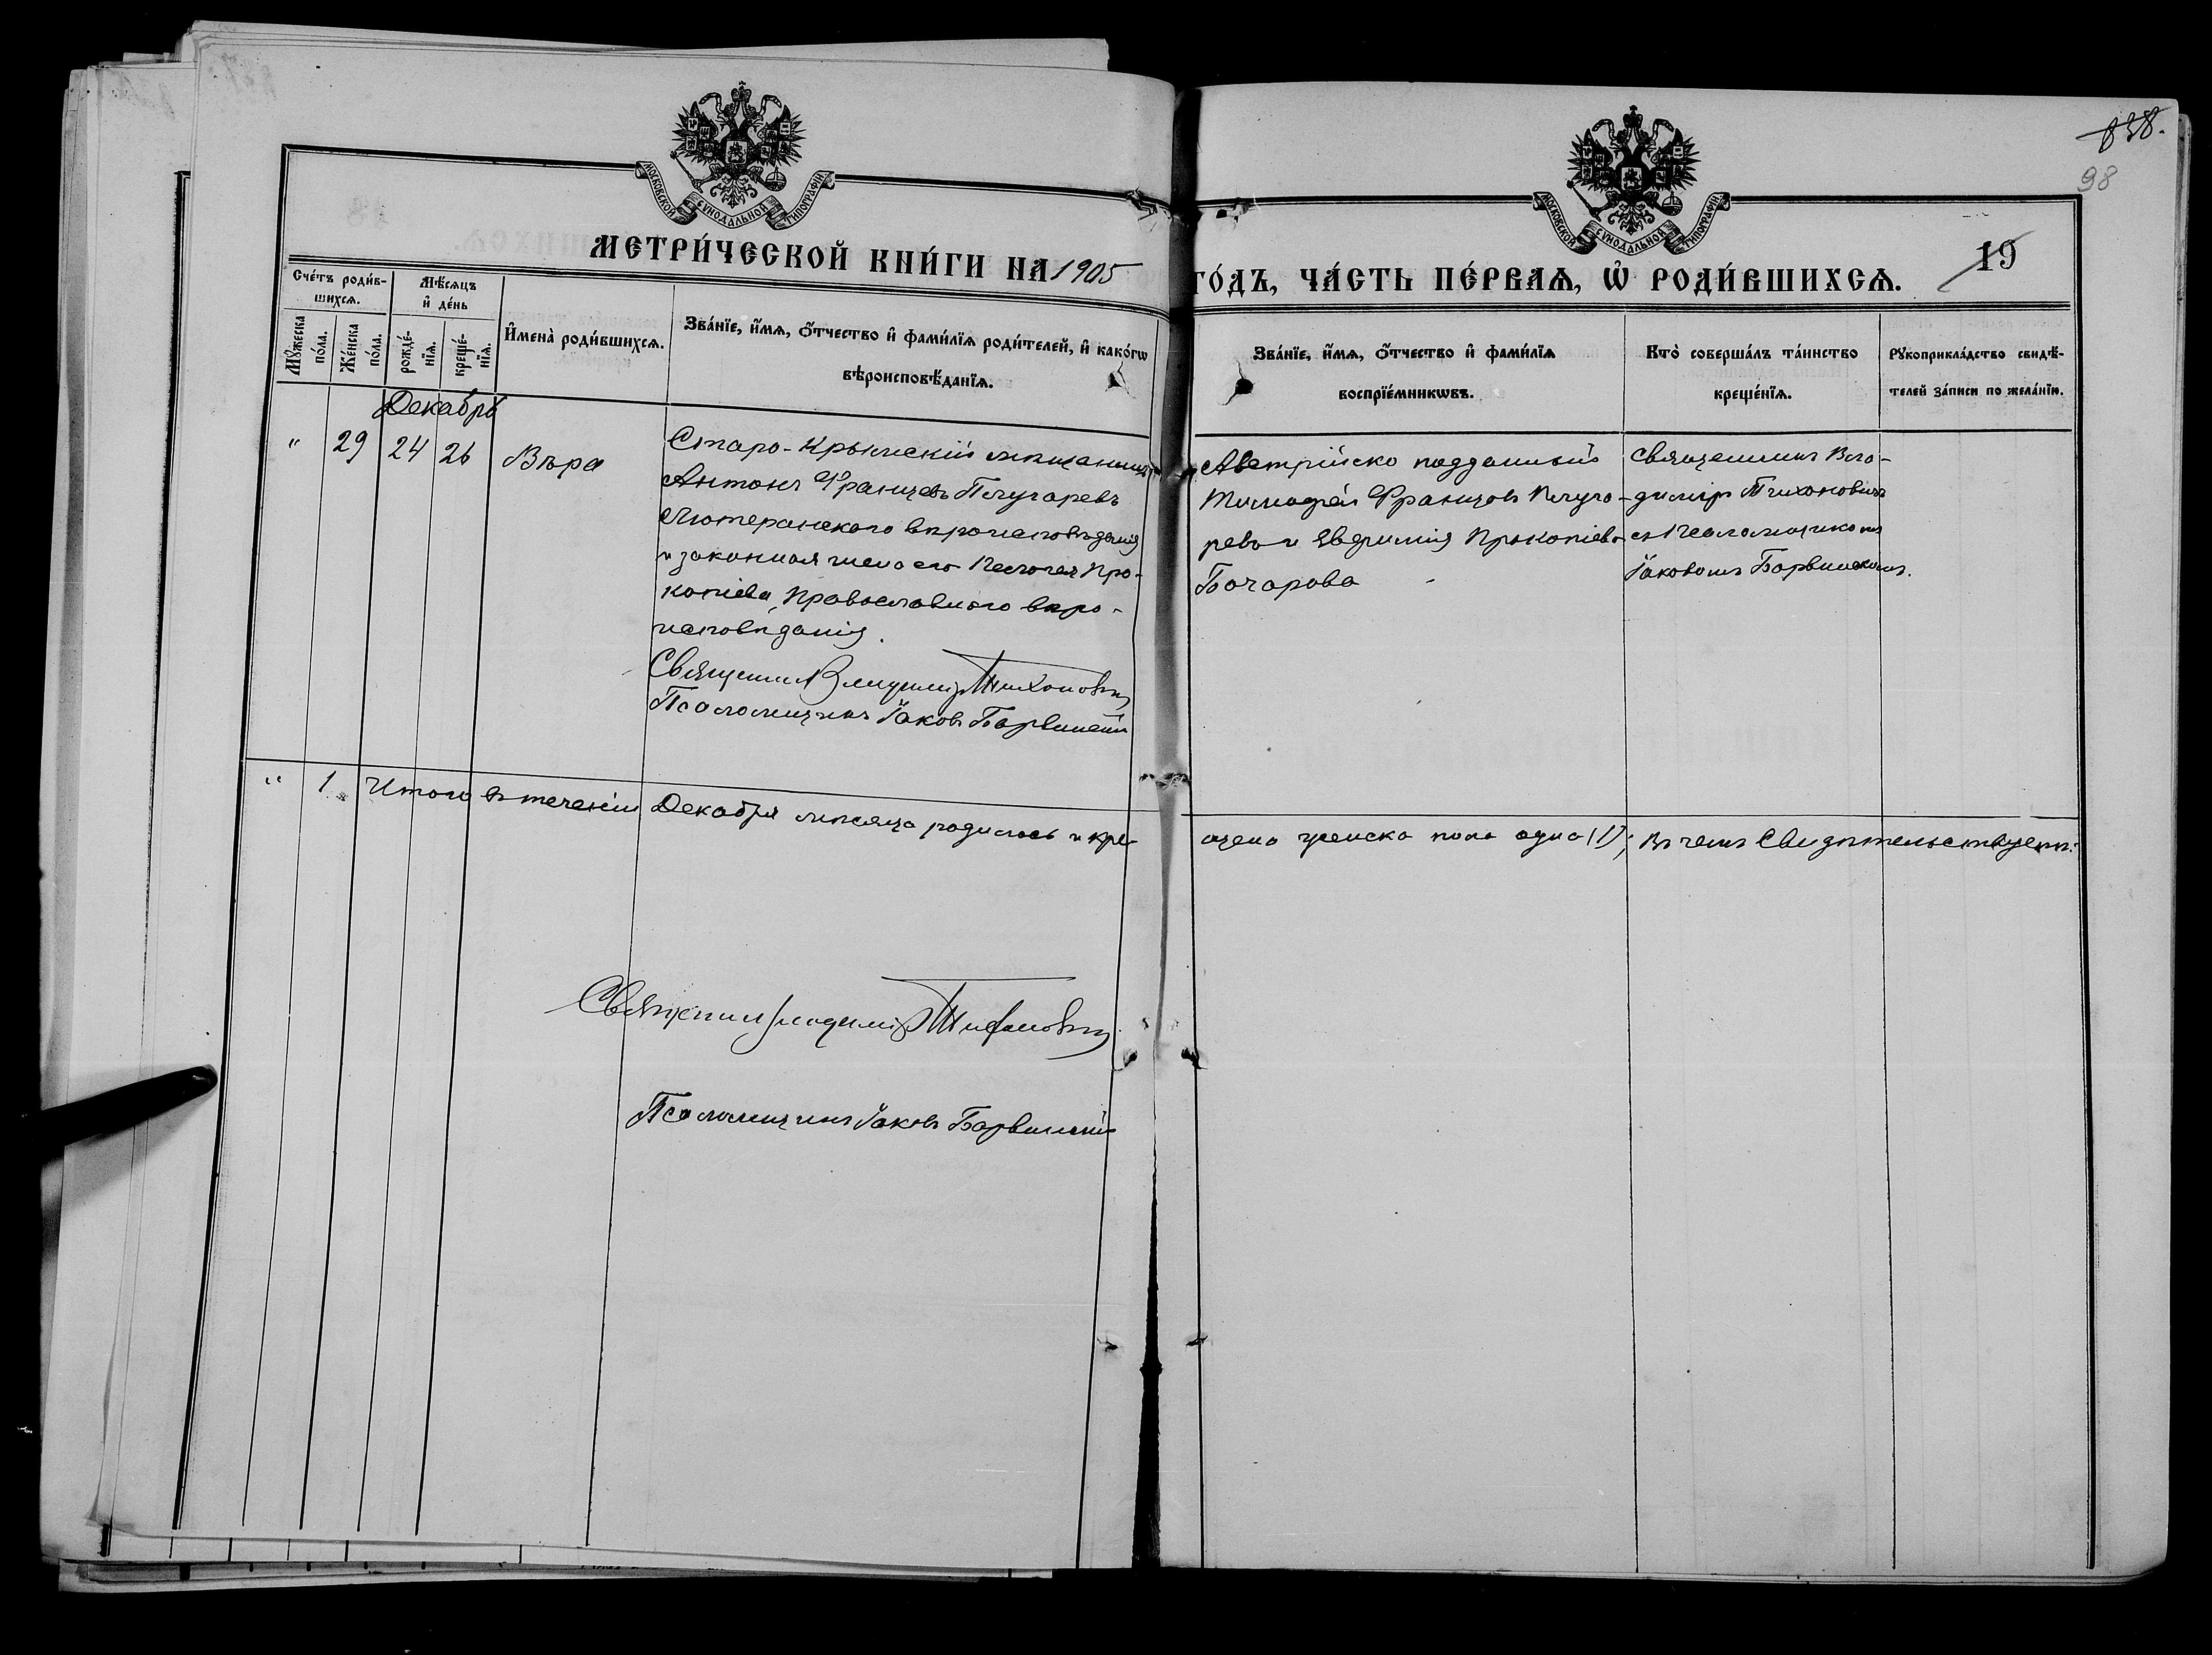 838.
98
МОСКОВСКОЙ СѴНОДАЛЬНОЙ ТИПОГРАФІИ
МОСКОВСКОЙ СѴНОДАЛЬНОЙ ТИПОГРАФІИ
МЕТРИ́ЧЕСКОЙ КНИ́ГИ НА 1905
ГО́ДЪ, ЧА́СТЬ ПЕ́РВАѦ, Ѡ҆ РОДИ́ВШИХСѦ.
19
Сче́тъ роди́в-
шихсѧ.
Мꙋ́жеска по́ла.
Же́нска по́ла.
Мѣ́сѧцъ
и҆ де́нь
рожде́-
нїѧ.
креще́-
нїѧ.
И҆мена̀ роди́вшихсѧ.
Зва́нїе, и҆́мѧ, ѻ҆́тчество и҆ фами́лїѧ роди́телей, и҆ како́гѡ
вѣроисповѣ́данїѧ.
Зва́нїе, и҆́мѧ, ѻ҆́тчество и҆ фами́лїѧ
воспрїе́мникѡвъ.
Кто̀ соверша́лъ та́инство
креще́нїѧ.
Рꙋкоприкла́дство свидѣ́-
телей за́писи по жела́нїю.
Декабрь
" 29 24 26 Вѣра
Старо-Крымскій мѣщанинъ
Антонъ Францевъ Плугаревъ
Лютеранскаго вѣроисповѣданія
и законная жена его Пелагея Про-
копіева, Православнаго вѣро-
исповѣданія.
Священникъ Владиміръ Тихоновичъ
Псаломщикъ Іаковъ Барвинскій
Австрійско подданный
Тимофей Францовъ Плуга-
ревъ и Евфимія Прокопіева
Бочарова
Священникъ Вла-
диміръ Тихоновичъ
съ Псаломщикомъ
Іаковомъ Барвинскимъ.
" 1 Итого въ теченіи Декабря мѣсяца родилось и кре-
щено женска пола одна (1); Въ чемъ Свидѣтельствуемъ:
Священникъ Владиміръ Тихоновичъ
Псаломщикъ Іаковъ Барвинскій